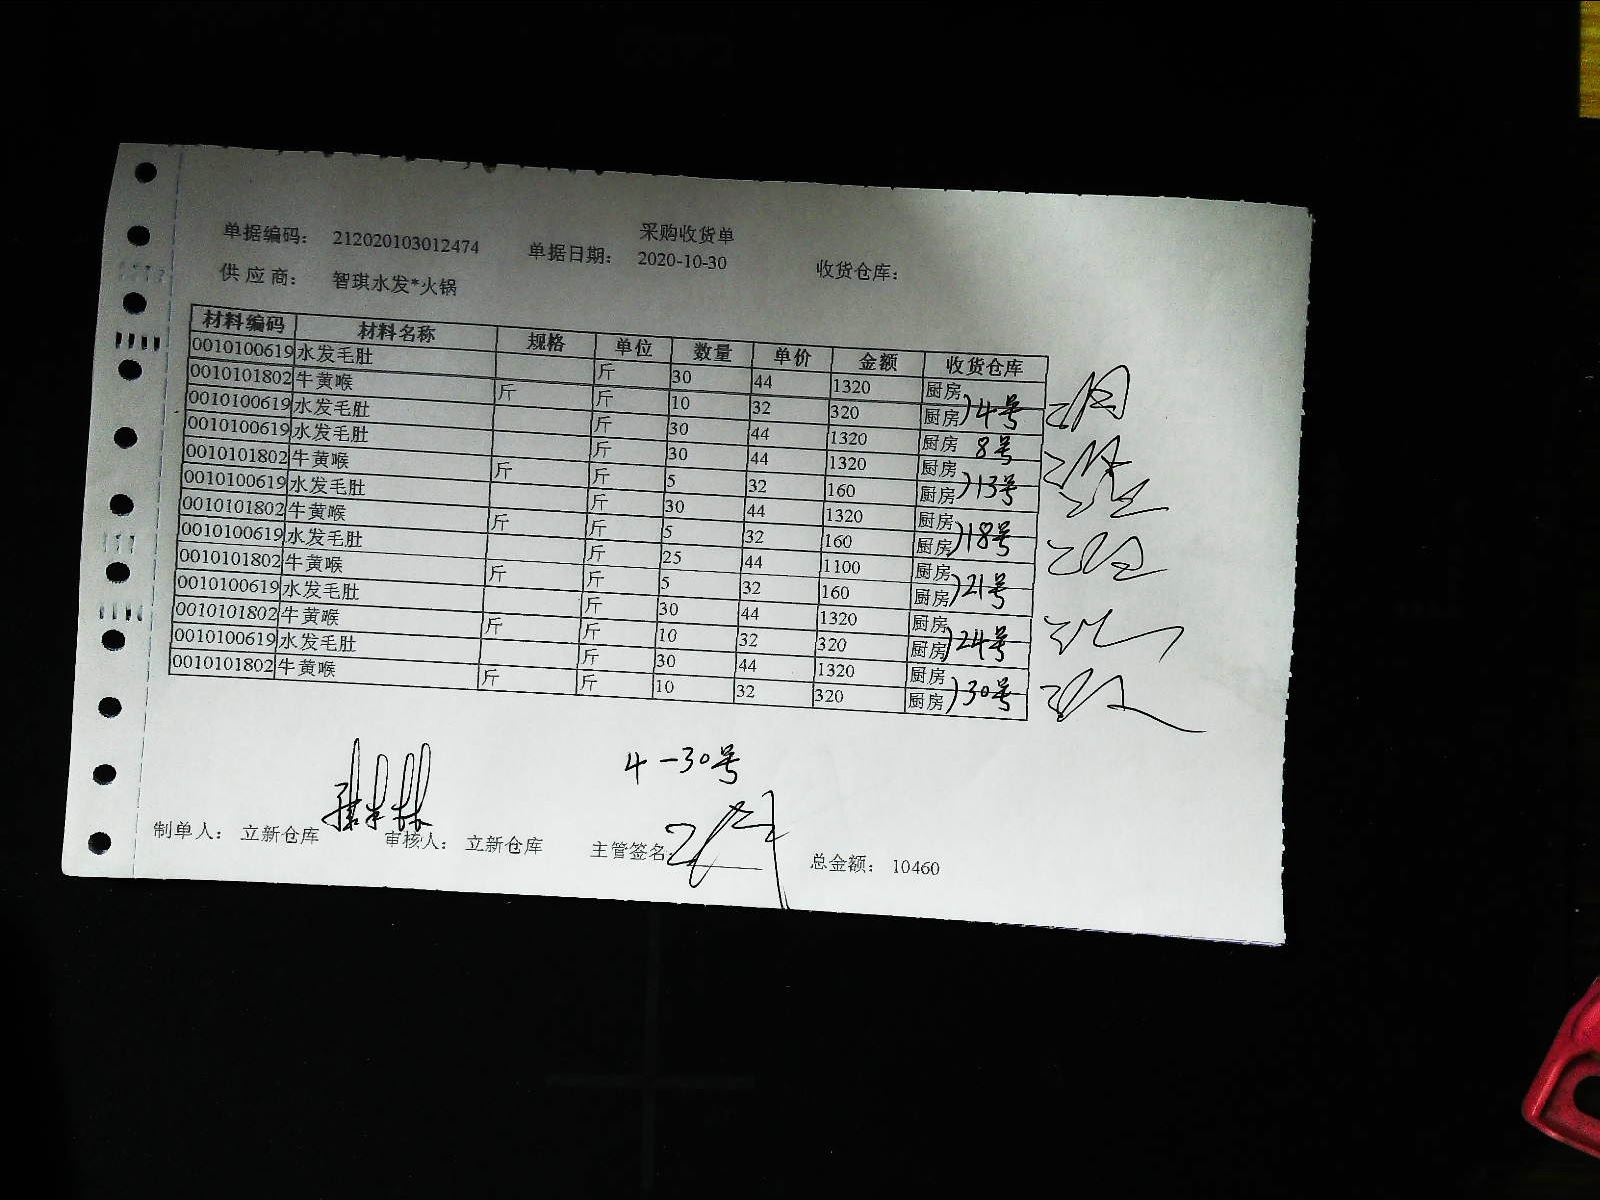 采购收货单
单据编码： 212020103012474 单据日期： 2020-10-30 收货仓库：
供 应 商： 智琪水发*火锅
材料编码 材料名称 规格 单位 数量 单价 金额 收货仓库
0010100619 水发毛肚 斤 30 44 1320 厨房
0010101802 牛黄喉 斤 斤 10 32 320 厨房 )4号
0010100619 水发毛肚 斤 30 44 1320 厨房 8号
0010100619 水发毛肚 斤 30 44 1320 厨房
0010101802 牛黄喉 斤 斤 5 32 160 厨房 )13号
0010100619 水发毛肚 斤 30 44 1320 厨房
0010101802 牛黄喉 斤 斤 5 32 160 厨房 )18号
0010100619 水发毛肚 斤 25 44 1100 厨房
0010101802 牛黄喉 斤 斤 5 32 160 厨房 )21号
0010100619 水发毛肚 斤 30 44 1320 厨房
0010101802 牛黄喉 斤 斤 10 32 320 厨房 )24号
0010100619 水发毛肚 斤 30 44 1320 厨房
0010101802 牛黄喉 斤 斤 10 32 320 厨房 )30号
4-30号
制单人： 立新仓库 审核人： 立新仓库 主管签名: 总金额： 10460